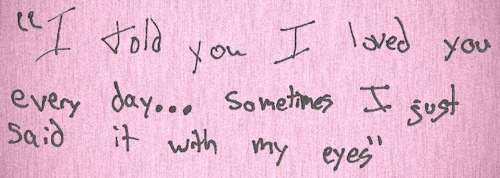 "I told you I loved you
every day... Sometimes I just
said it with my eyes"